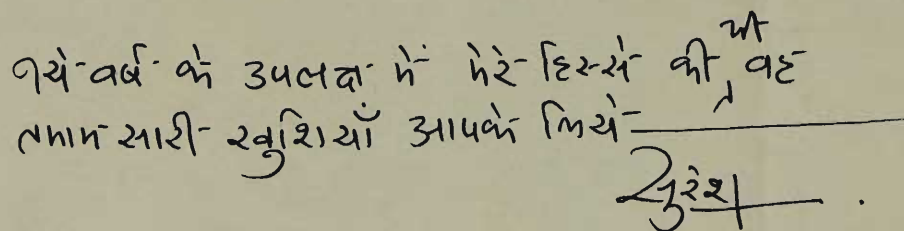 नये वर्ष के उपलक्ष में मेरे हिस्से की भी वह
तमाम सारी खुशियाँ आपके लिये
सुरेश